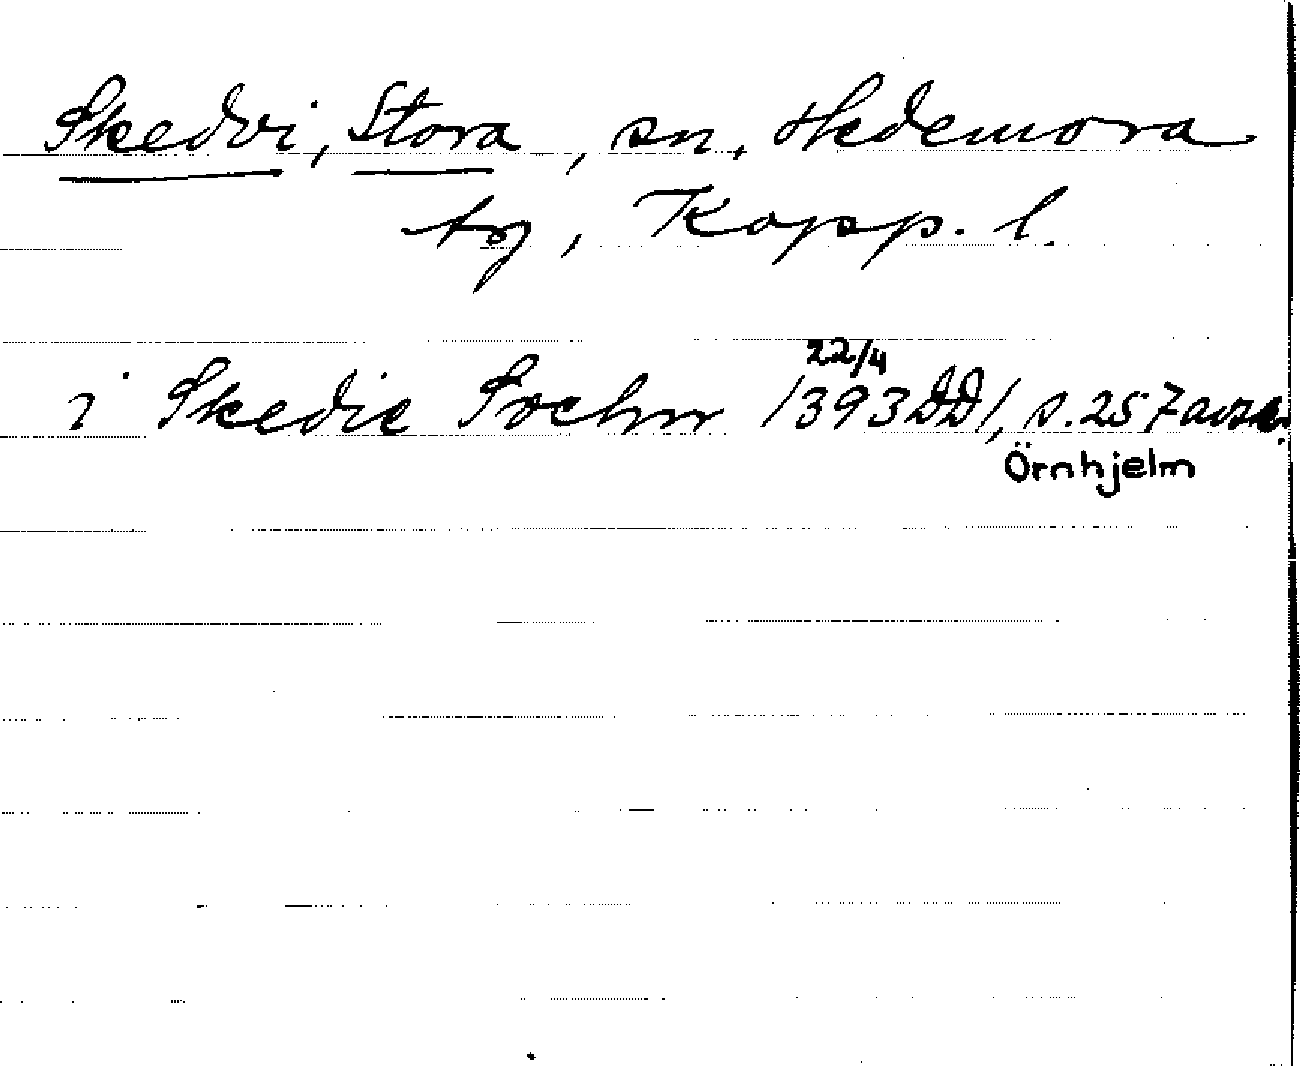 Skedvi, Stora, sn, Hedemora
tg, Kopp. l.
i Skedie Sochn 22/4 1393 DD 1, s. 257 avskr.
Örnhjelm